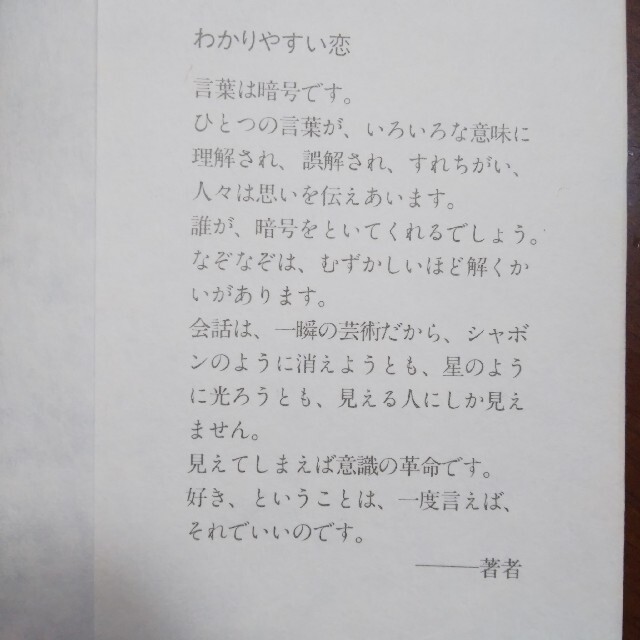 わかりやすい恋
言葉は暗号です。
ひとつの言葉が、いろいろな意味に
理解され、誤解され、すれちがい、
人々は思いを伝えあいます。
誰が、暗号をといてくれるでしょう。
なぞなぞは、むずかしいほど解くか
いがあります。
会話は、一瞬の芸術だから、シャボ
ンのように消えようとも、星のよう
に光ろうとも、見える人にしか見え
ません。
見えてしまえば意識の革命です。
好き、ということは、一度言えば、
それでいいのです。
――著者